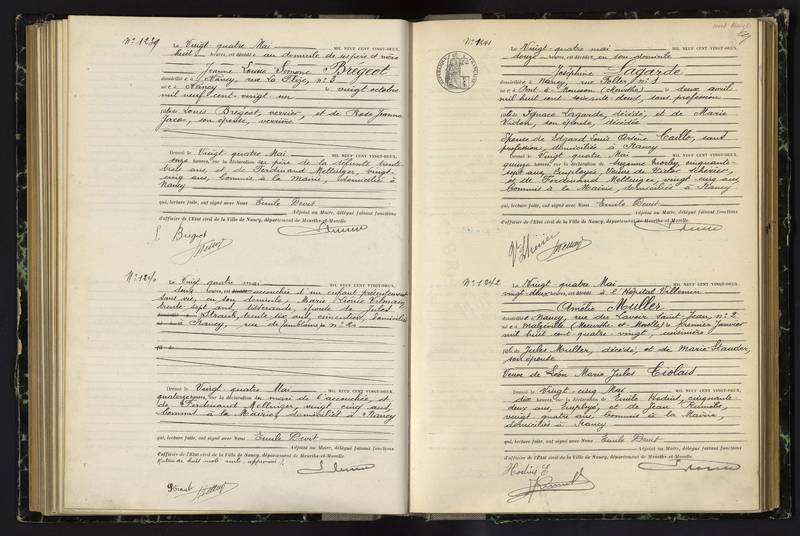 N° 1239
Le Vingt-quatre Mai MIL NEUF CENT VINGT-DEUX,
huit heures, est décédée au domicile de ses père et mère
Jeanne Louise Simone Brégeot
domicilié à Nancy, rue La Flize, n° 3
né à Nancy le vingt octobre
mil neuf cent vingt un
fille de Louis Brégeot, verrier, et de Rose Jeanne
Jacob, son épouse, verrière
Dressé le Vingt-quatre Mai MIL NEUF CENT VINGT-DEUX,
onze heures, sur la déclaration du père de la défunte trente
trois ans, et de Ferdinand Mellinger, vingt-
cinq ans, Commis à la Mairie, domiciliés à
Nancy
qui, lecture faite, ont signé avec Nous Emile Devit
Adjoint au Maire, délégué faisant fonctions
d'officier de l'Etat civil de la Ville de Nancy, département de Meurthe-et-Moselle
L. Brégeot
N° 1240
Le Vingt quatre mai MIL NEUF CENT VINGT-DEUX,
deux heures, est accouchée d'un enfant présentement
sans vie, en son domicile, Marie Léonie
trente sept ans, tisserande, épouse de Jules
Straub, trente six ans, cimentier, domiciliés
à Nancy, rue
Dressé le Vingt-quatre Mai MIL NEUF CENT VINGT-DEUX,
quatorze heures, sur la déclaration du mari de l'accouchée, et
de Ferdinand Mellinger, vingt cinq ans,
Commis à la Mairie, domiciliés à Nancy
qui, lecture faite, ont signé avec Nous Emile Devit
Adjoint au Maire, délégué faisant fonctions
d'officier de l'Etat civil de la Ville de Nancy, département de Meurthe-et-Moselle
Rature de huit mots nuls, approuvé
N° 1241
Le Vingt-quatre mai MIL NEUF CENT VINGT-DEUX,
douze heures, est décédée en son domicile
Joséphine Lagarde
domiciliée à Nancy, rue Foller, n° 1
née à Pont à Mousson (Meurthe) le deux avril
mil huit cent soixante deux, sans profession
fille de Ignace Lagarde, décédé, et de Marie
Vidon, son épouse, décédée
Epouse de Edgard Louis Arsène Caillo, sans
profession, domiciliés à Nancy
Dressé le Vingt-quatre Mai MIL NEUF CENT VINGT-DEUX,
quinze heures, sur la déclaration de Suzanne
sept ans, Employée, Veuve de Victor
et de Ferdinand Mellinger, vingt cinq ans
Commis à la Mairie, domiciliés à Nancy
qui, lecture faite, ont signé avec Nous Emile Devit
Adjoint au Maire, délégué faisant fonctions
d'officier de l'Etat civil de la Ville de Nancy, département de Meurthe-et-Moselle
N° 1242
Le Vingt-quatre Mai MIL NEUF CENT VINGT-DEUX,
vingt-deux heures, est décédée à l'Hôpital Villemin
Amélie Muller
domiciliée à Nancy, rue du Lavoir Saint-Jean, n° 2
née à Malzéville (Meurthe-et-Moselle) le premier janvier
mil huit cent quatre-vingt, cuisinière
fille de Jules Muller, décédé, et de Marie Stauder,
son épouse
Veuve de Léon Marie Jules Ciolais
Dressé le Vingt-cinq Mai MIL NEUF CENT VINGT-DEUX,
dix heures, sur la déclaration de Emile Hodiüs, cinquante-
deux ans, Employé, et de Jean
vingt quatre ans, Commis à la Mairie,
domiciliés à Nancy
qui, lecture faite, ont signé avec Nous Emile Devit
Adjoint au Maire, délégué faisant fonctions
d'officier de l'Etat civil de la Ville de Nancy, département de Meurthe-et-Moselle
Hodiüs E